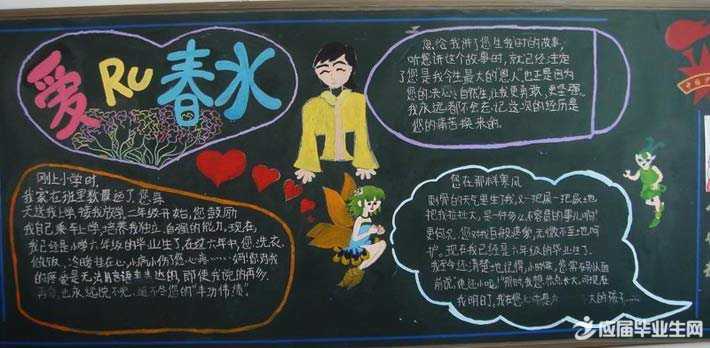 爱RU春水
您给我讲了您生我时的故事,
听您讲这个故事时,就已经注定
了您是我今生最大的"恩人"也正是因为
您的决心:自然生,让我更勇敢、更坚强。
我永远都不会忘记这次的经历是
您的痛苦换来的。
刚上小学时,
我家在班里数最远了,您每
天送我上学,接我放学,二年级开始,您鼓励
我自己乘车上学,培养我独立、自强的能力。现在,
我已经是小学六年级的毕业生了,在这六年中,您洗衣、
做饭、冷暖挂在心,小病小伤了您心疼……妈!您对我
的疼爱是无法用言语来表达的,即使我说的再多
也永远说不完、道不尽您的"丰功伟绩"。
您在那样寒风
刺骨的天气里生了我,又一把屎一把尿地
把我拉扯大,是一件多么不容易的事儿啊!
更何况,您对我百般疼爱,无微不至地呵
护。现在我已经是六年级的毕业生了。
我至今还清楚地记得,小时候,您常在别人面
前说"他还小呢!"
我明白,我在您
大的孩子……
应届毕业生网